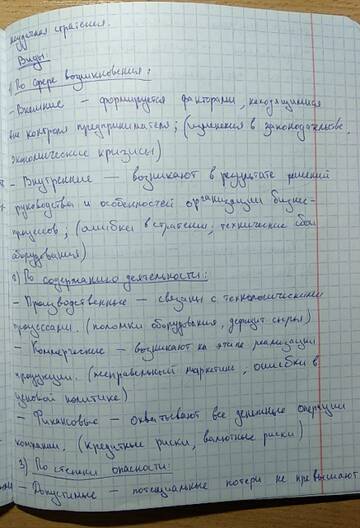 неудачная стратегия.
Виды:
1) По сфере возникновения:
- Внешние – формируется факторами, находящимися
вне контроля предпринимателя; (изменения в законодательстве,
экономические кризисы)
- Внутренние – возникают в результате решений
руководства и особенностей организации бизнес-
процессов; (ошибки в стратегии, технические сбои
оборудования)
2) По содержанию деятельности:
- Производственные – связаны с технологическими
процессами. (поломки оборудования, дефицит сырья)
- Коммерческие – возникают на этапе реализации
продукции. (неправильный маркетинг, ошибки в
ценовой политике)
- Финансовые – охватывают все денежные операции
компании. (кредитные риски, валютные риски)
3) По степени опасности:
- Допустимые – потенциальные потери не превышают